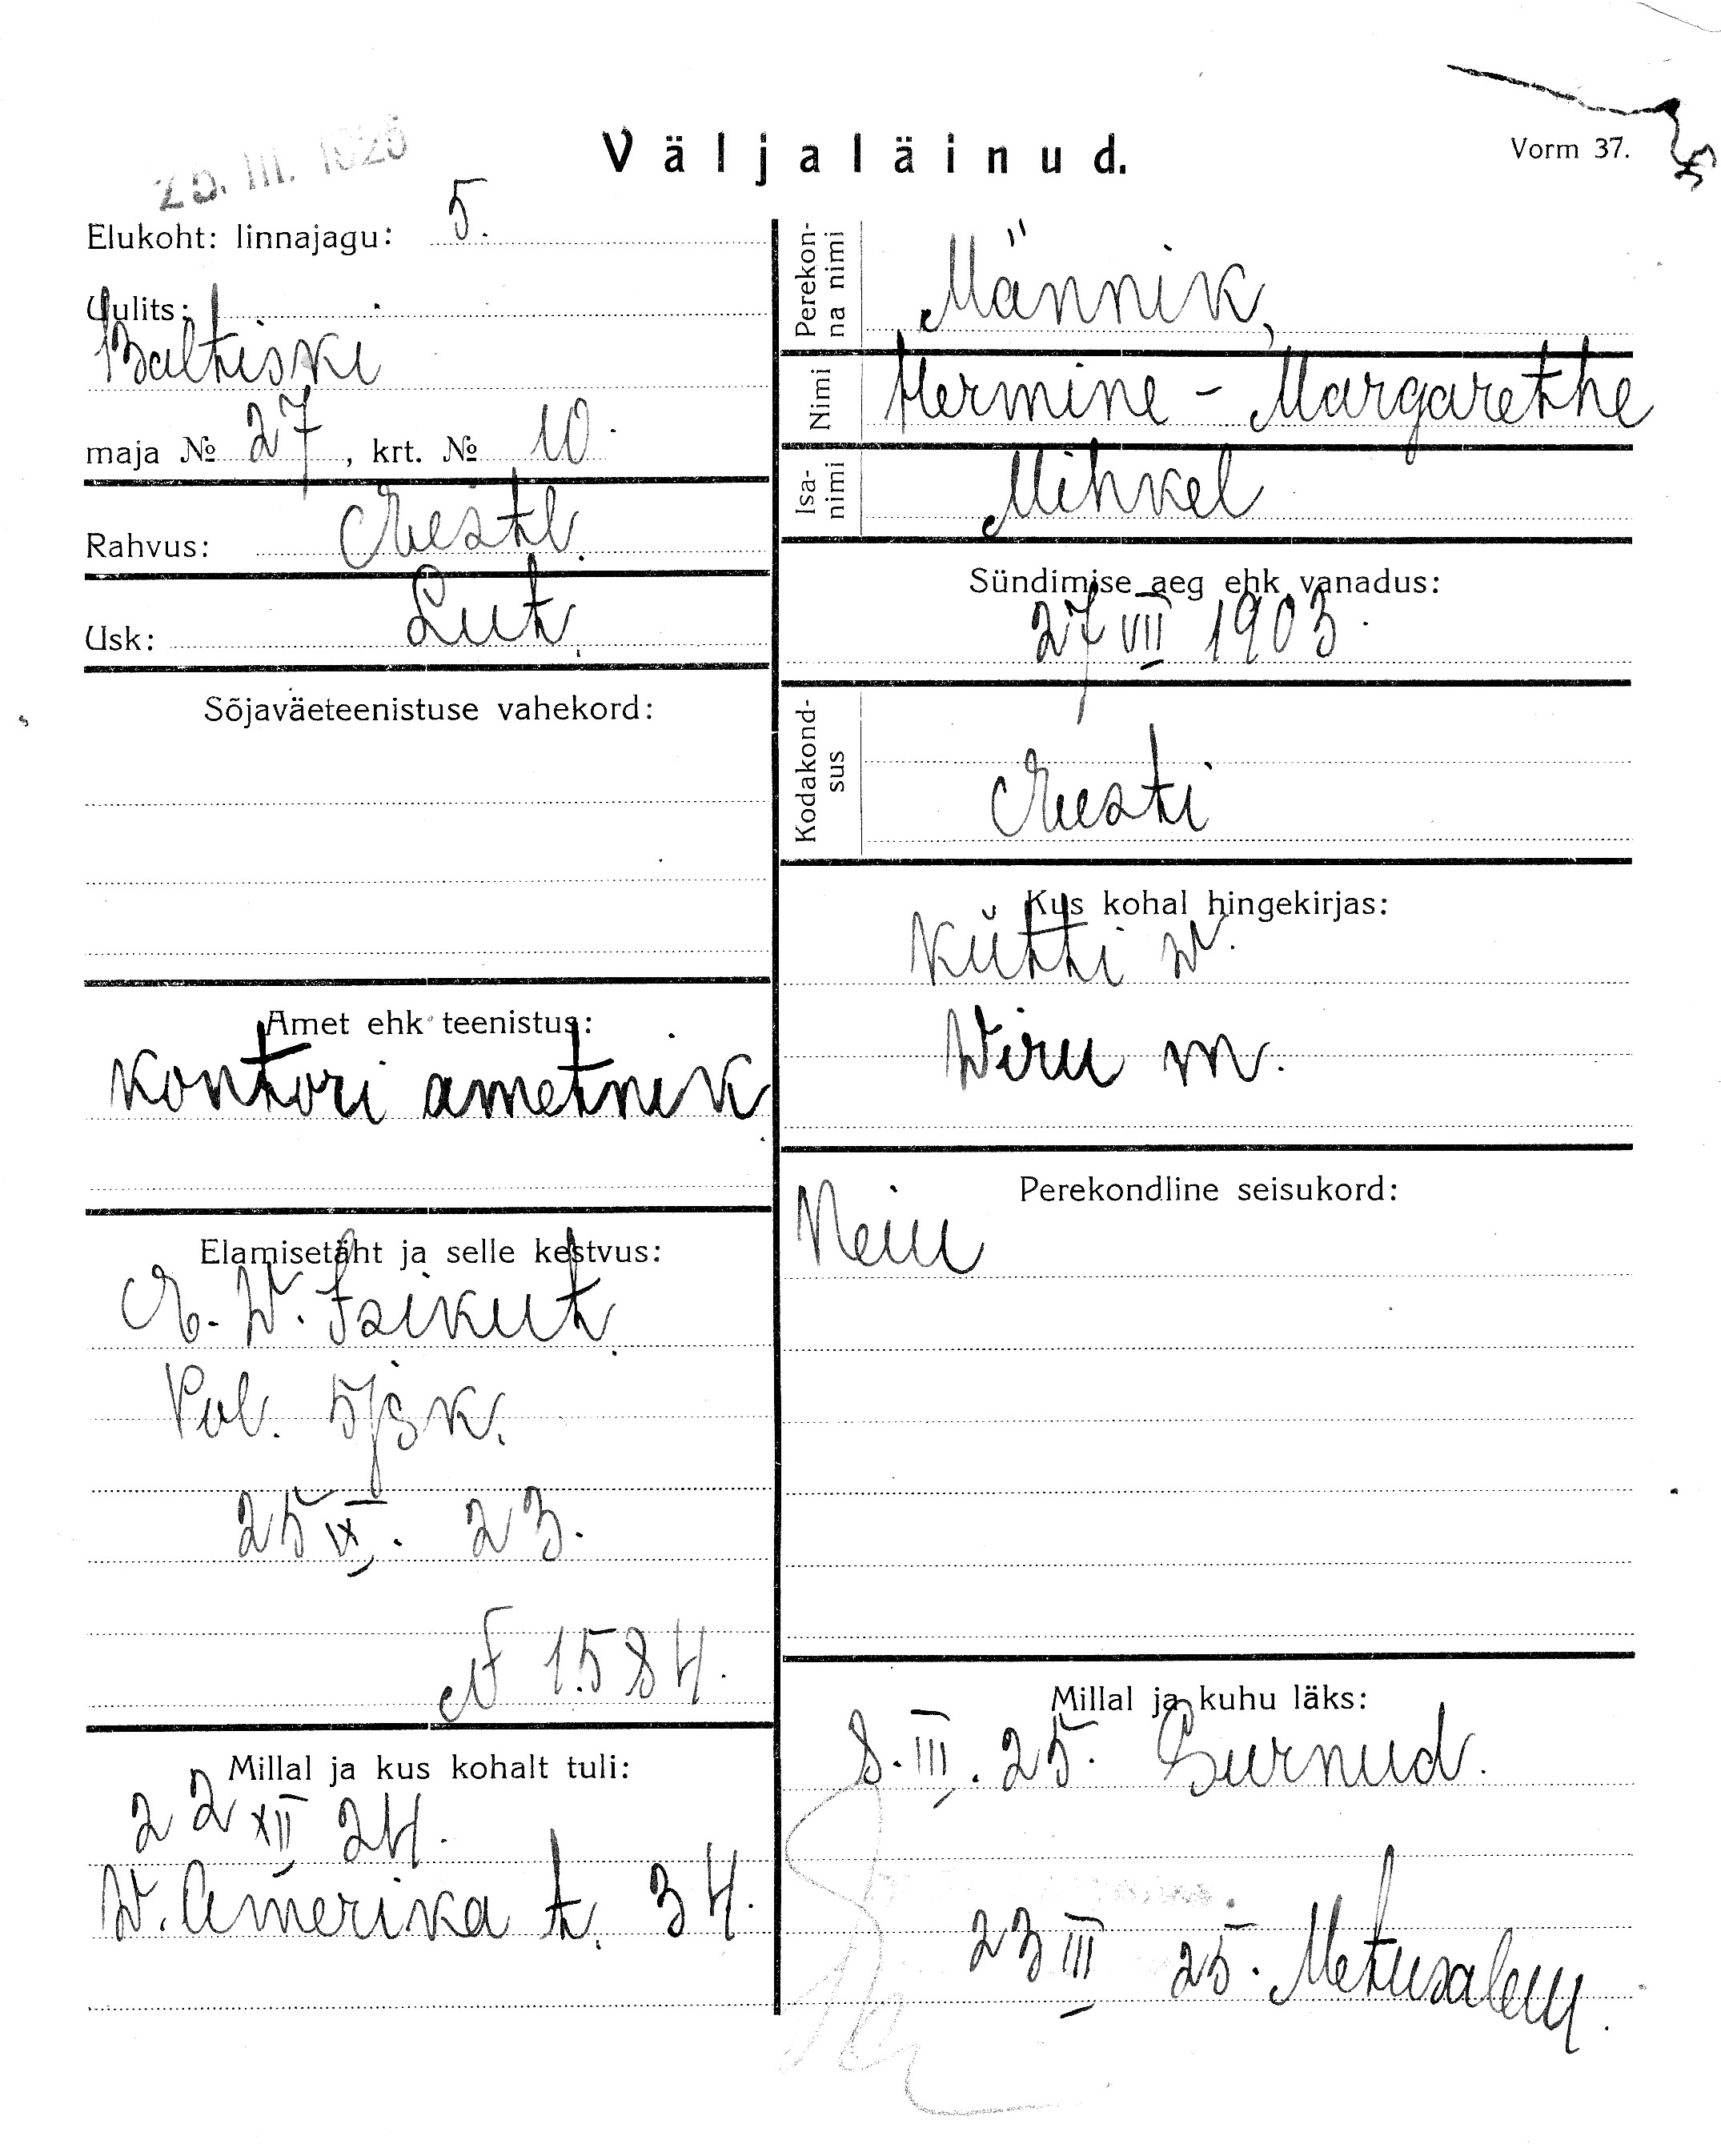 25. III. 1925
Väljaläinud.
Vorm 37.
Elukoht: linnajagu: 5.
Uulits:
Baltiski
maja № 27, krt. № 10.
Rahvus: Eestl.
Usk: Lut.
Sõjaväeteenistuse vahekord:
Amet ehk teenistus:
Kontori ametnik
Elamisetäht ja selle kestvus:
E. W. Isikut.
Pol. 5 jsk.
25 IX. 23.
№ 1584.
Millal ja kus kohalt tuli:
22 XII 24.
W. Amerika t. 34.
Perekonna nimi
Männik,
Nimi
Hermine - Margarethe
Isanimi
Mihkel
Sündimise aeg ehk vanadus:
27 VII 1903.
Kodakondsus
Eesti
Kus kohal hingekirjas:
Kütti w.
Wiru m.
Perekondline seisukord:
Neiu
Millal ja kuhu läks:
8. III. 25. Surnud.
23 III 25.